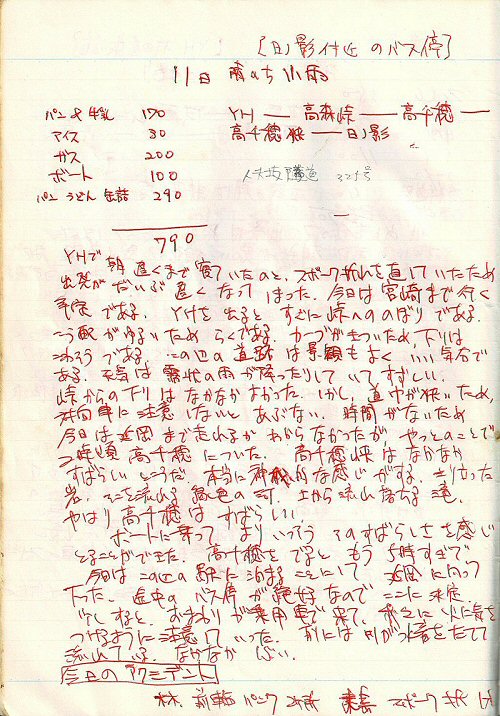 [日ノ影付近 のバス停]
11日 晴のち小雨
パン & 牛乳 170 YH — 高森峠 — 高千穂 —
アイス 30 高千穂峡 — 日ノ影
ガス 200
ボート 100 325号
パン うどん 缶詰 290
790
YHで朝遅くまで寝ていたのと、スポーク折れを直していたため
出発がだいぶ遅くなってしまった。今日は宮崎まで行く
予定である。YHを出ると すぐに峠へののぼりである。
こう配がゆるいため らくである。カーブがきついため、下りは
こわそうである。この辺の道路は景観もよく いい気分で
ある。天気は霧状の雨が降ったりしていてすずしい。
峠からの下りはなかなかすごかった。しかし、道巾が狭いため、
対向車に注意しないと あぶない。時間がないため
今日は延岡まで走れるか わからなかったが、やっとのことで
2時頃 高千穂についた。 高千穂峡はなかなか
すばらしいところだ 本当に神秘的な感じがする。きり立った
岩、そこを流れる緑色の河、上から流れおちる滝、
やはり高千穂はすばらしい
ボートに乗って よりいっそう そのすばらしさを感じ
とることができた。高千穂をでると もう5時すぎで
今日はこの辺の駅に泊まることにして 延岡に向って
下った。途中のバス停が絶好なのでここに決定。
少しすると、おまわりが乗用車で来て、 火に気を
つけるように注意して いった。 前には川がつ音をたてて
流れている。なかなか しぶい。
今日のアクシデント
林 前輪 パンク スポーク 折れ